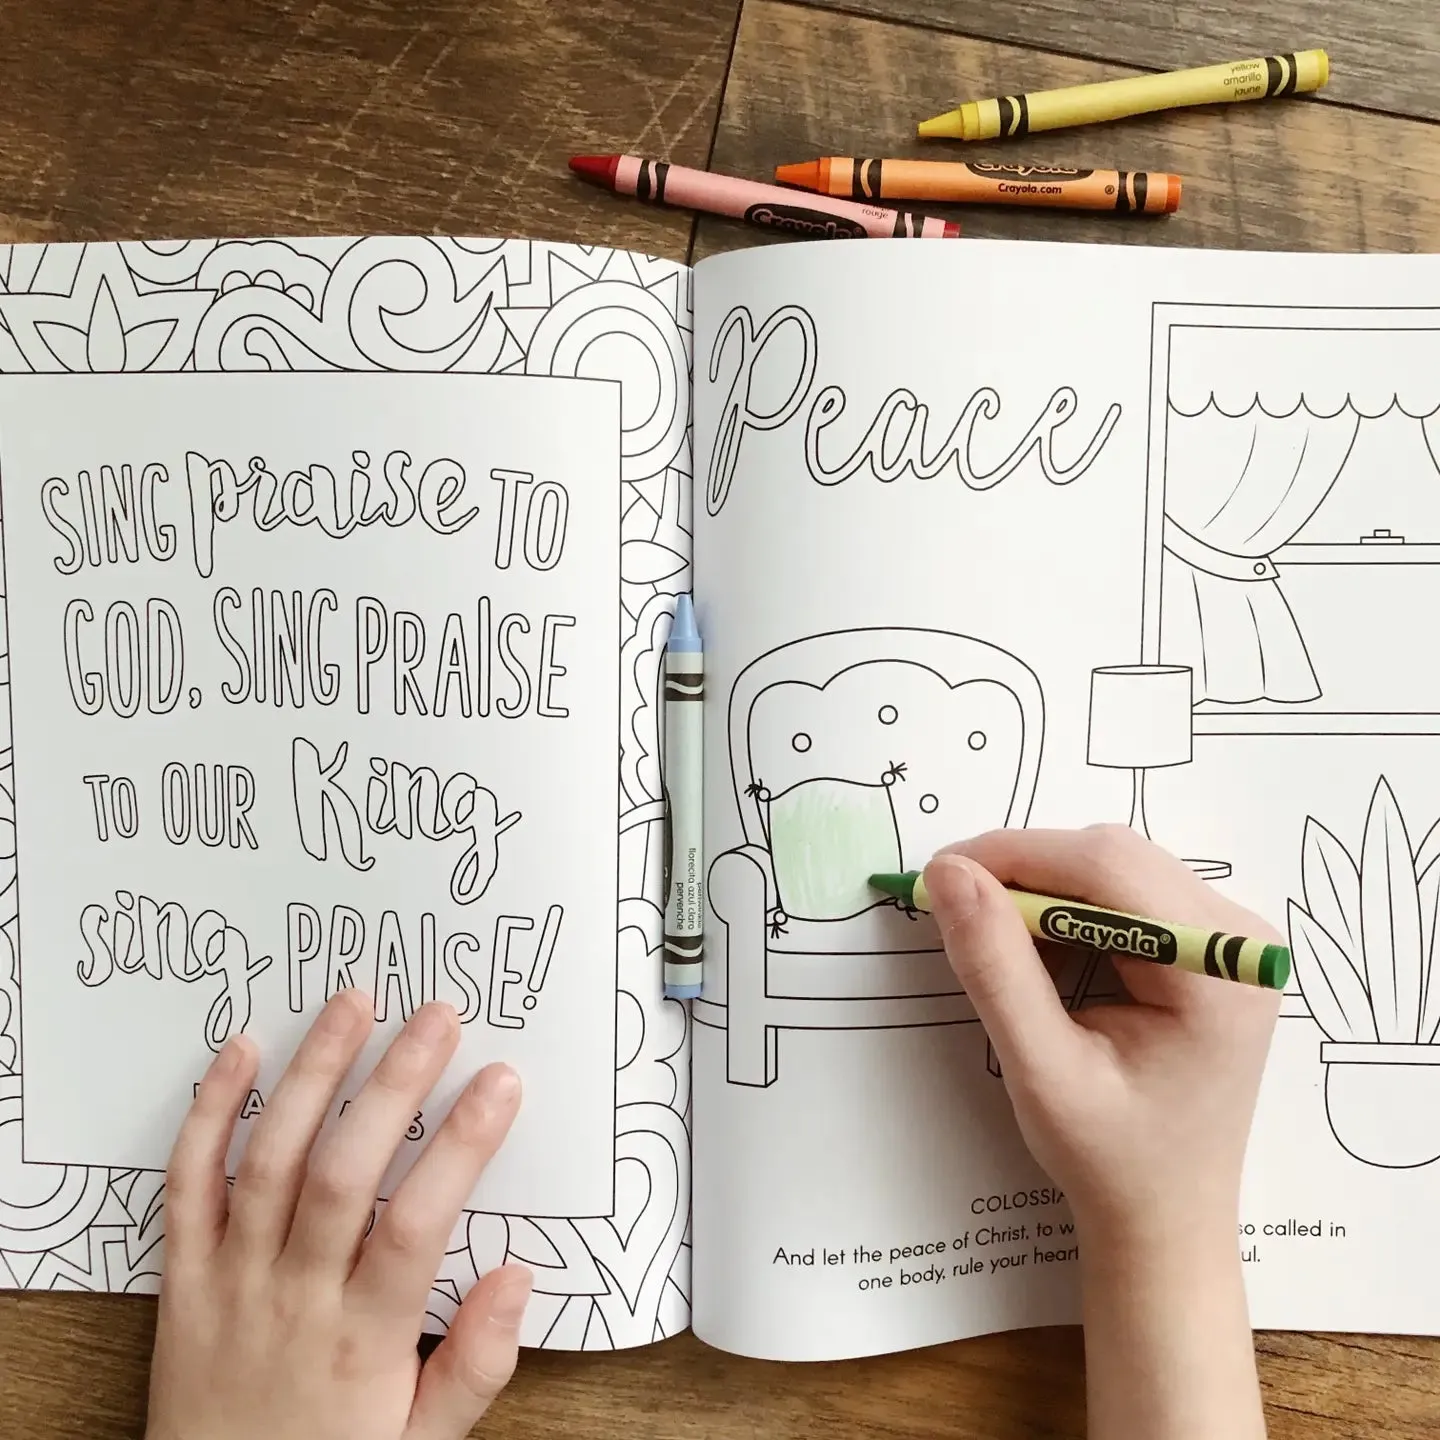 yellow
amarillo
jaune
Crayola
Crayola.com
®
rouge
Crayola
SING praise TO
GOD, SING PRAISE
TO OUR King
sing PRAISE!
6
Peace
periwinkle
florecita azul claro
pervenche
Crayola®
And let the peace of Christ, to so called in
one body, rule your